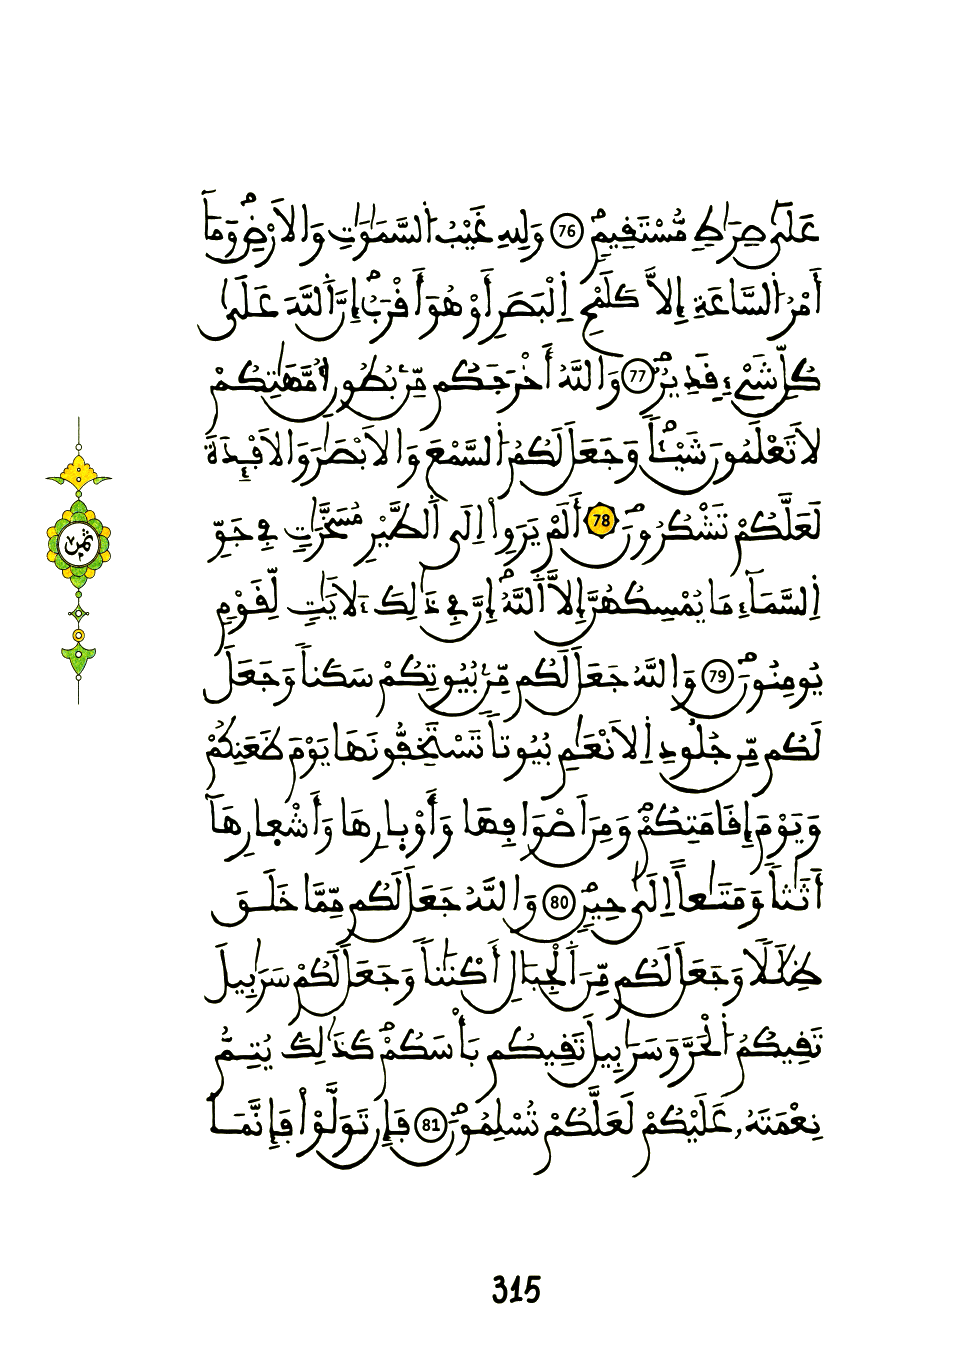 عَلَىٰ صِرَٰطٖ مُّسْتَقِيمٖ 76 وَلِلهِ غَيْبُ اُ۬لسَّمَٰوَٰتِ وَالَارْضِ وَمَآ
أَمْرُ اُ۬لسَّاعَةِ إِلَّا كَلَمْحِ اِ۬لْبَصَرِ أَوْ هُوَ أَقْرَبُ إِنَّ اَ۬للَّهَ عَلَىٰ
كُلِّ شَےْءٖ قَدِيرٞ 77 وَاللَّهُ أَخْرَجَكُم مِّنۢ بُطُونِ أُمَّهَٰتِكُمْ
لَا تَعْلَمُونَ شَيْـٔاٗ وَجَعَلَ لَكُمُ اُ۬لسَّمْعَ وَالَابْصَٰرَ وَالَافْـِٕدَةَ
لَعَلَّكُمْ تَشْكُرُونَ 78 أَلَمْ يَرَوِاْ اِلَى اَ۬لطَّيْرِ مُسَخَّرَٰتٖ فِے جَوِّ
اِ۬لسَّمَآءِ مَا يُمْسِكُهُنَّ إِلَّا اَ۬للَّهُ إِنَّ فِے ذَٰلِكَ ءَلَايَٰتٖ لِّقَوْمٖ
يُومِنُونَ 79 وَاللَّهُ جَعَلَ لَكُم مِّنۢ بُيُوتِكُمْ سَكَناٗ وَجَعَلَ
لَكُم مِّن جُلُودِ اِ۬لَانْعَٰمِ بُيُوتاٗ تَسْتَخِفُّونَهَا يَوْمَ ظَعَنِكُمْ
وَيَوْمَ إِقَامَتِكُمْ وَمِنَ اَصْوَافِهَا وَأَوْبِارِهَا وَأَشْعِارِهَآ
أَثَٰثاٗ وَمَتَٰعاً اِلَىٰ حِينٖ 80 وَاللَّهُ جَعَلَ لَكُم مِّمَّا خَلَقَ
ظِلَٰلاٗ وَجَعَلَ لَكُم مِّنَ اَ۬لْجِبَالِ أَكْنَٰناٗ وَجَعَلَ لَكُمْ سَرَٰبِيلَ
تَقِيكُمُ اُ۬لْحَرَّ وَسَرَٰبِيلَ تَقِيكُم بَأْسَكُمْ كَذَٰلِكَ يُتِمُّ
نِعْمَتَهُۥ عَلَيْكُمْ لَعَلَّكُمْ تُسْلِمُونَ 81 فَإِن تَوَلَّوْاْ فَإِنَّمَا
ثمن
315